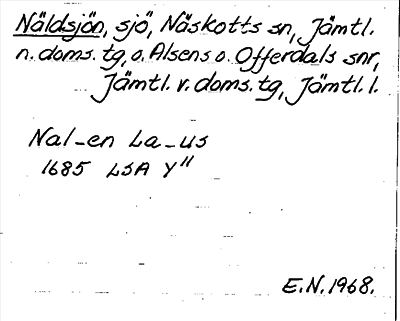 Näldsjön, sjö, Näskotts sn, Jämtl.
n. doms. tg, o. Alsens o. Offerdals snr,
Jämtl. v. doms. tg, Jämtl. l.
Nal-en La-us
1685 LSA Y"
E.N. 1968.